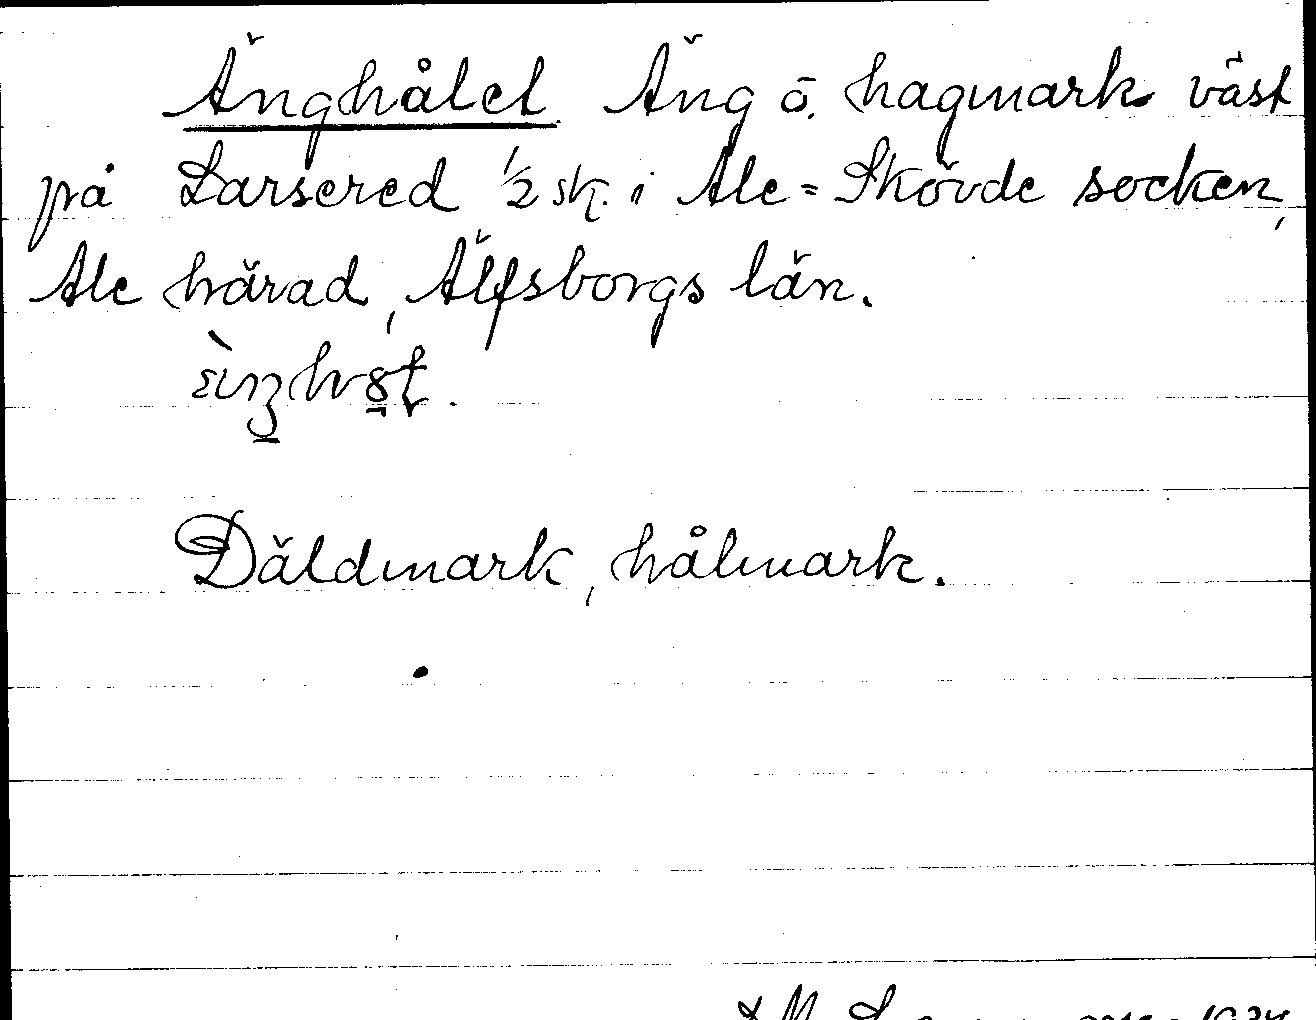 Änghålet. Äng o. hagmark väst
på Larsered 1/2 sk. i Ale=Skövde socken,
Ale härad, Älfsborgs län.
Däldmark, hålmark.